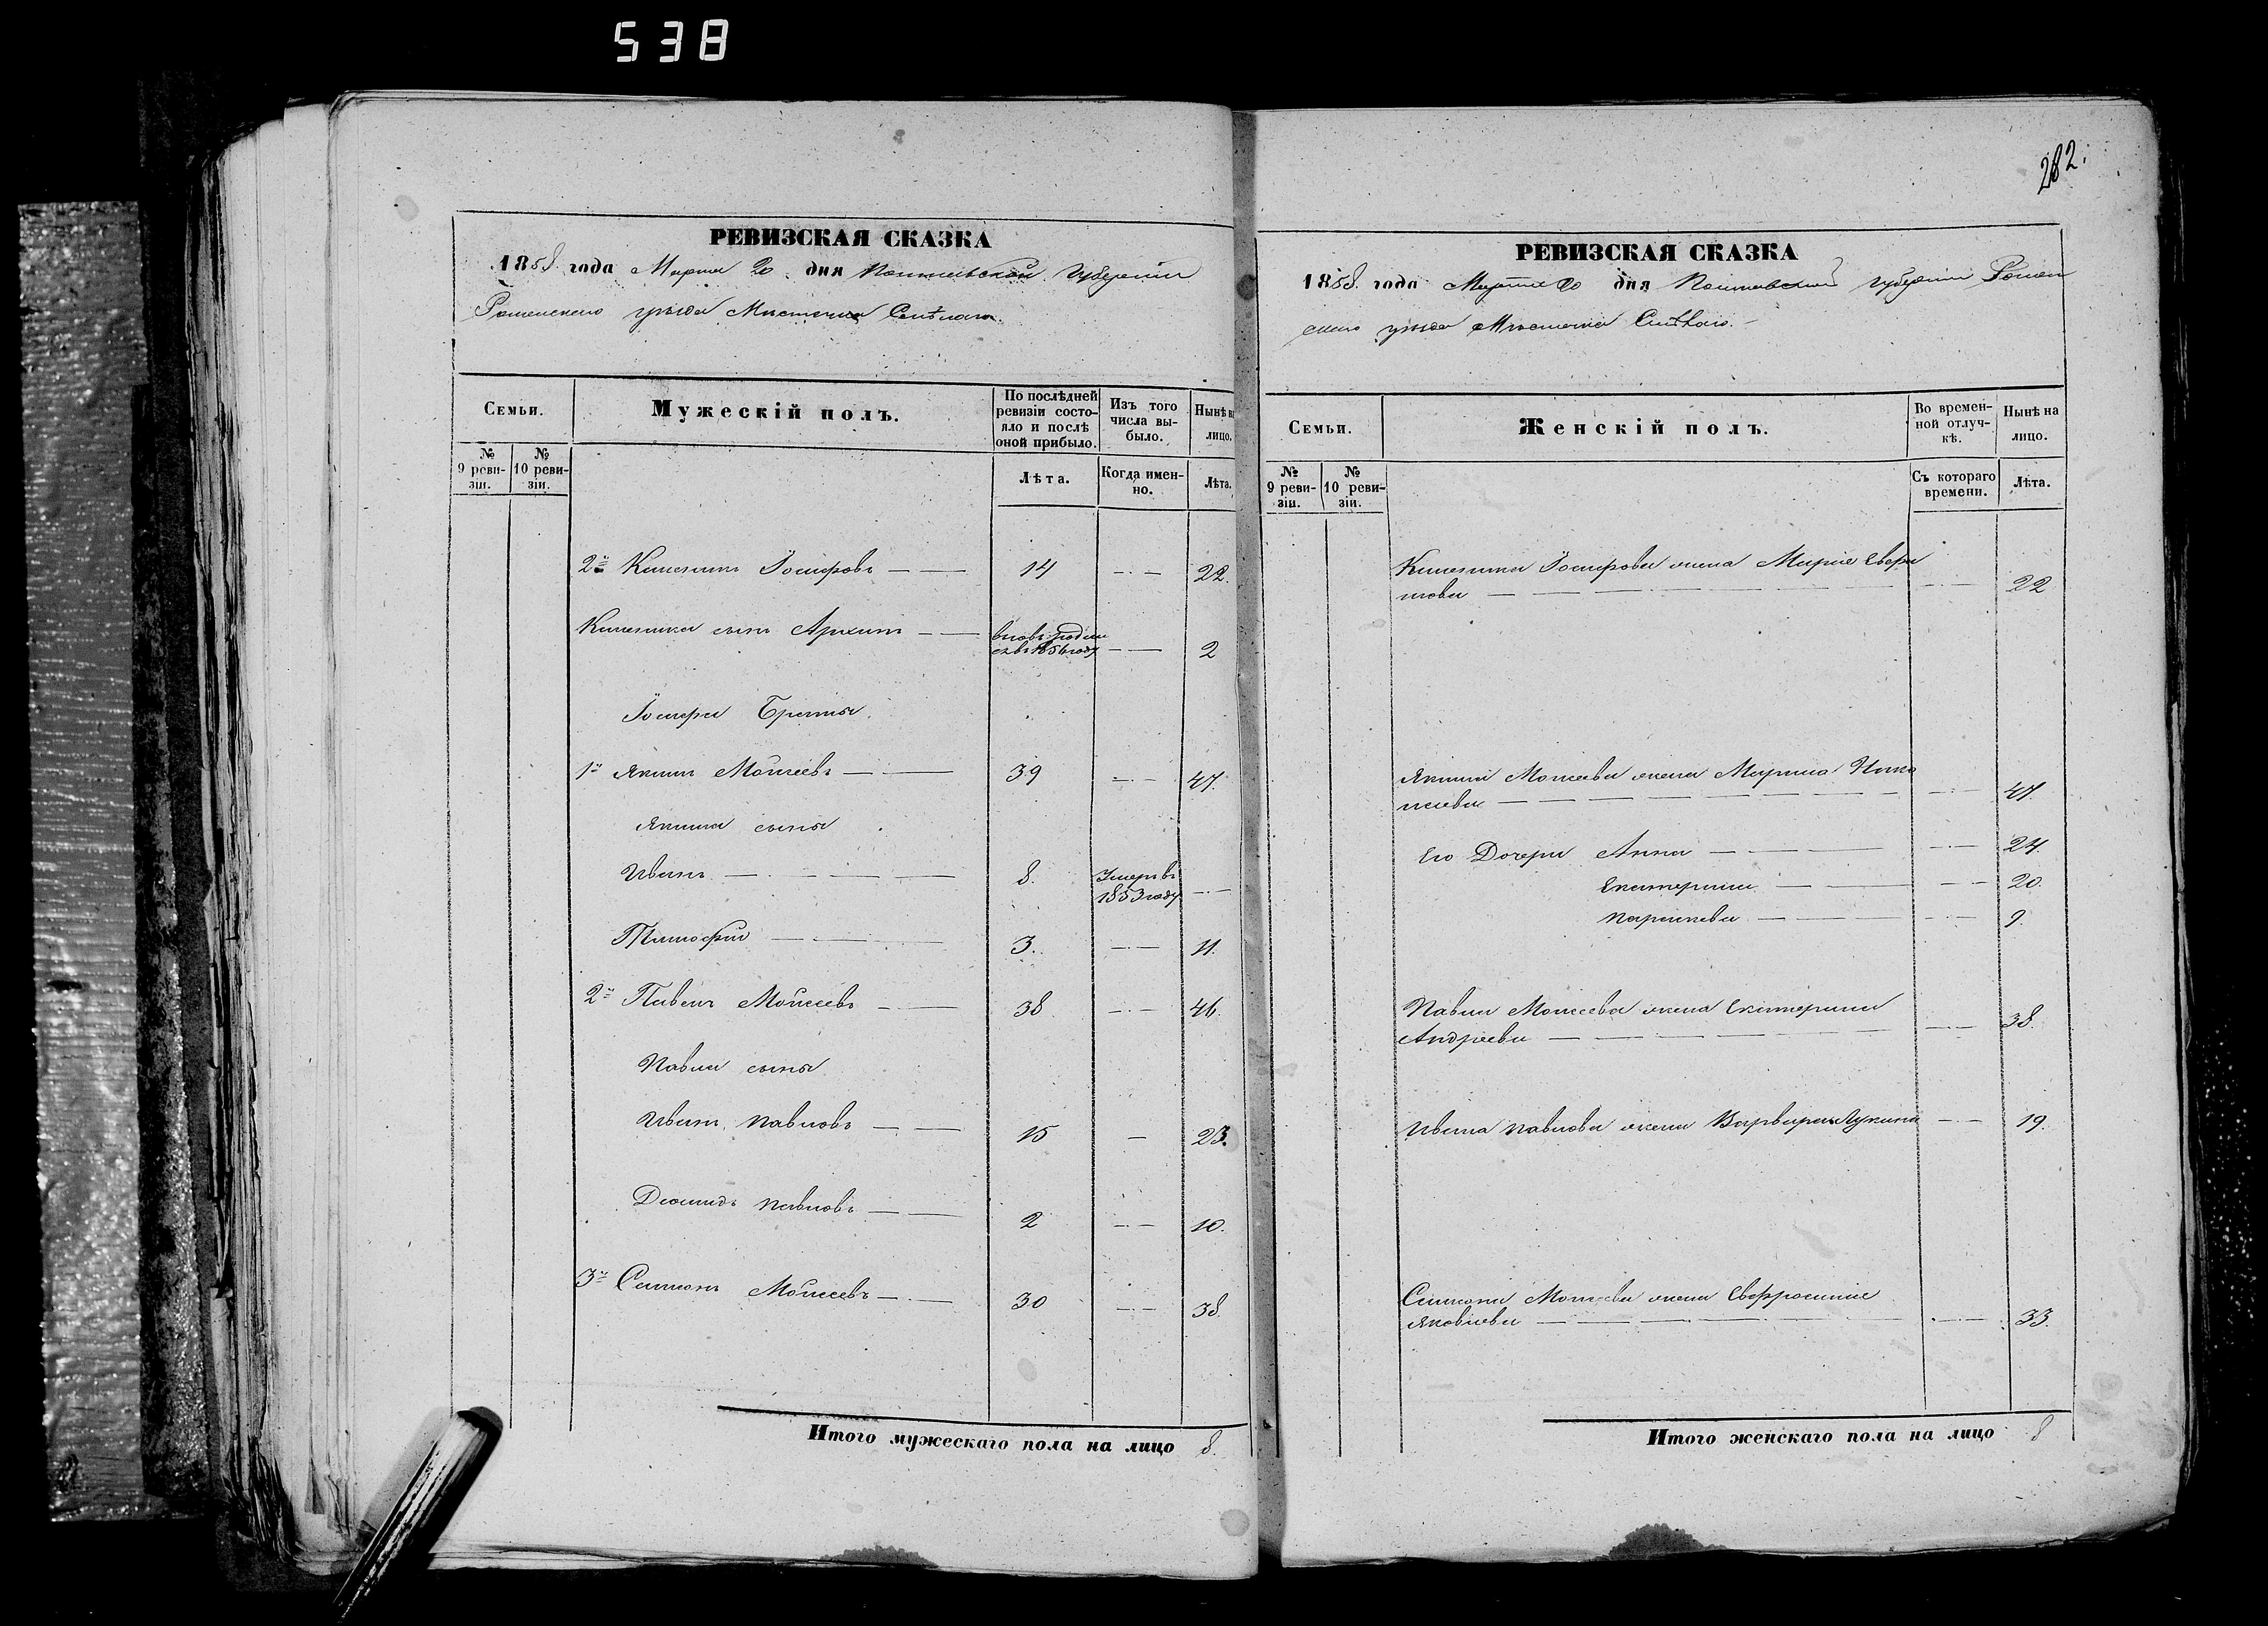 538
РЕВИЗСКАЯ СКАЗКА
1858 года Марта 20 дня Полтавской Губерніи
Роменскаго уѣзда Мѣстечка Смѣлаго.
Семьи.
Мужескій полъ.
По послѣдней ревизіи состояло и послѣ оной прибыло.
Изъ того числа выбыло.
Нынѣ на лицо.
№ 9 ревизіи.
№ 10 ревизіи.
Лѣта.
Когда именно.
Лѣта.
2й Іосифовъ — — 14 — — 22.
сынъ Архипъ — — вновь родился въ 1856 году — — 2
Іосифа Братья
1й Якимъ Моисеевъ — — 39 — — 47.
Якима сыны
Иванъ — — — 8. Умеръ въ 1853 году — —
Тимофій — — — 3. — — 11.
2й Павелъ Моисеевъ — — 38 — — 46.
Павла сыны
Иванъ Павловъ — — 15 — 23.
Діомидъ Павловъ — — 2 — — 10.
3й Симонъ Моисеевъ — — 30 — — 38.
Итого мужескаго пола на лицо 8.
282.
РЕВИЗСКАЯ СКАЗКА
1858 года Марта 20 дня Полтавской губерніи Ромен
скаго уѣзда Мѣстечка Смѣлаго.
Семьи.
Женскій полъ.
Во временной отлучкѣ.
Нынѣ на лицо.
№ 9 ревизіи.
№ 10 ревизіи.
Съ котораго времени.
Лѣта.
Іосифова жена Марія
— — — 22
Якима Моисеева жена Марина
— — — 47.
Его Дочери Анна — — — 24.
Екатерина — — — 20.
Параскева — — — 9.
Павла Моисеева жена Екатерина
Андреева — — — 38.
Ивана Павлова жена Варвара Лукина — — 19.
Симона Моисеева жена Евфросинія
Яковлева — — — 33.
Итого женскаго пола на лицо 8